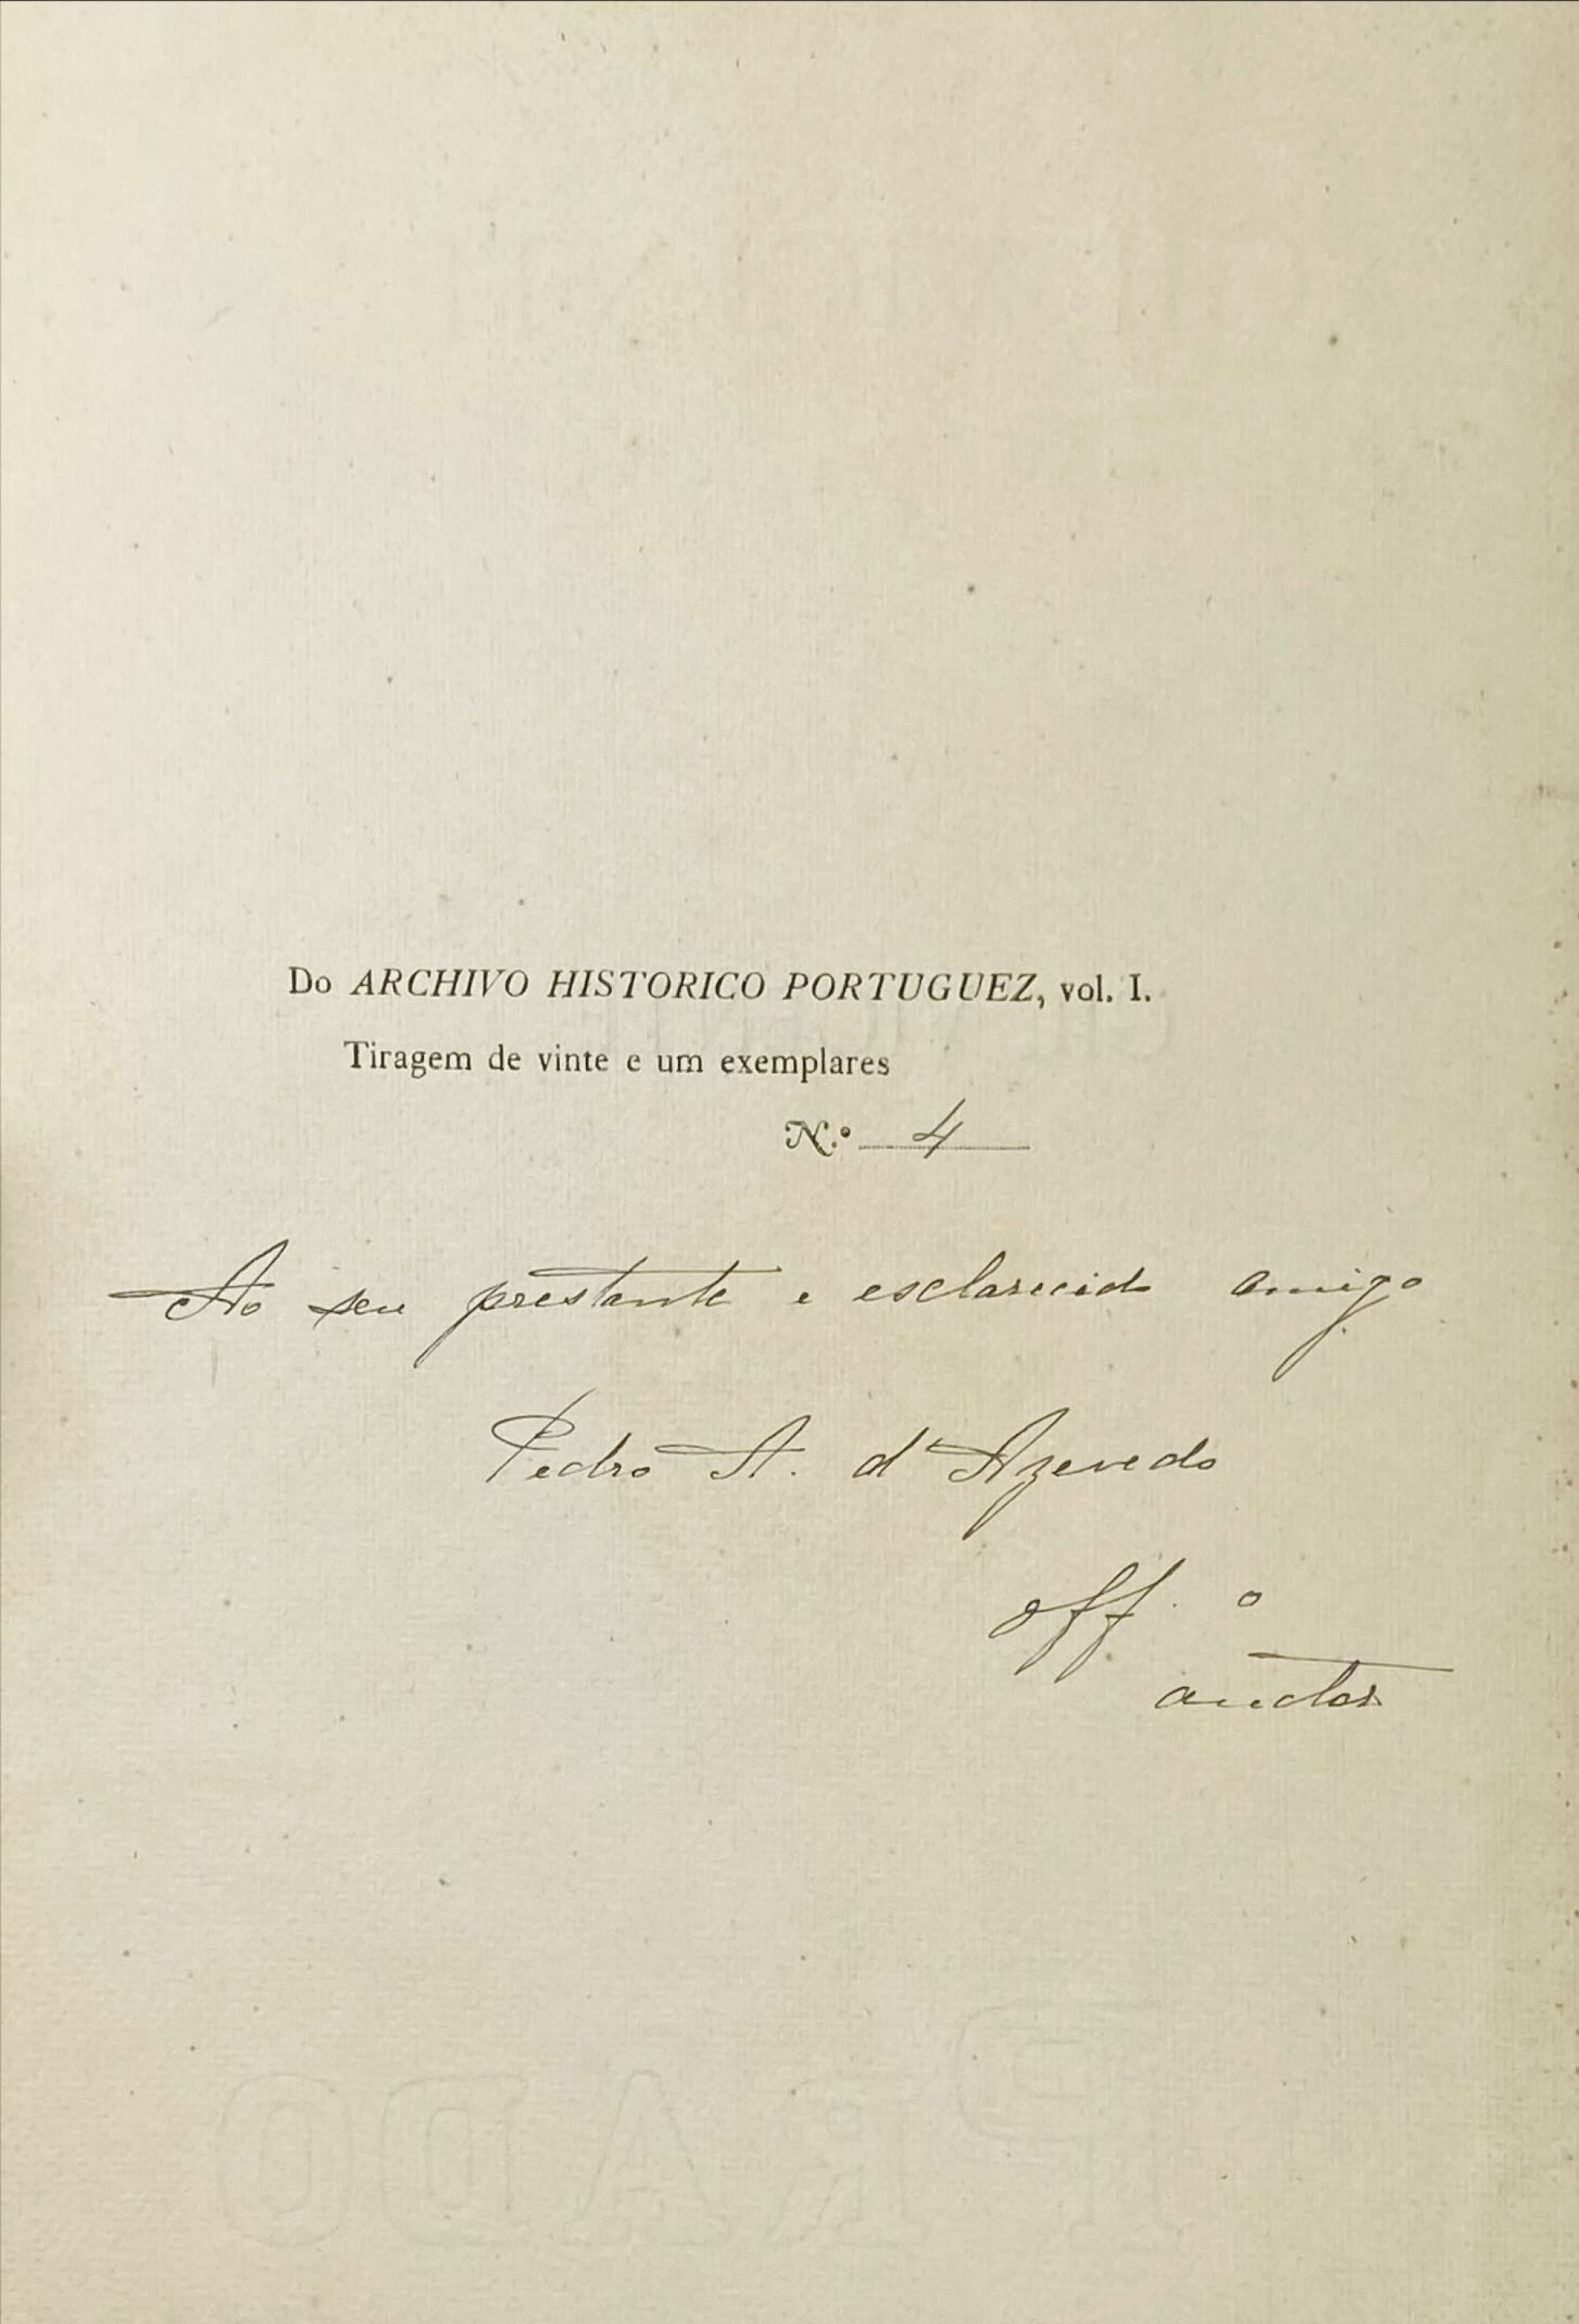 Do ARCHIVO HISTORICO PORTUGUEZ, vol. I.
Tiragem de vinte e um exemplares
N.º 4
Ao seu prestante e esclarecido amigo
Pedro A. d'Azevedo
off. o
auctor